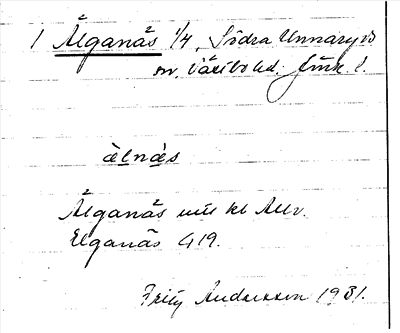 1 Älganäs 1/4, Södra Unnaryds
sn, Västbo hd. Jönk. l.
àlnàs
Älganäs
Elganäs 419.
Fritz Andersson 1931.